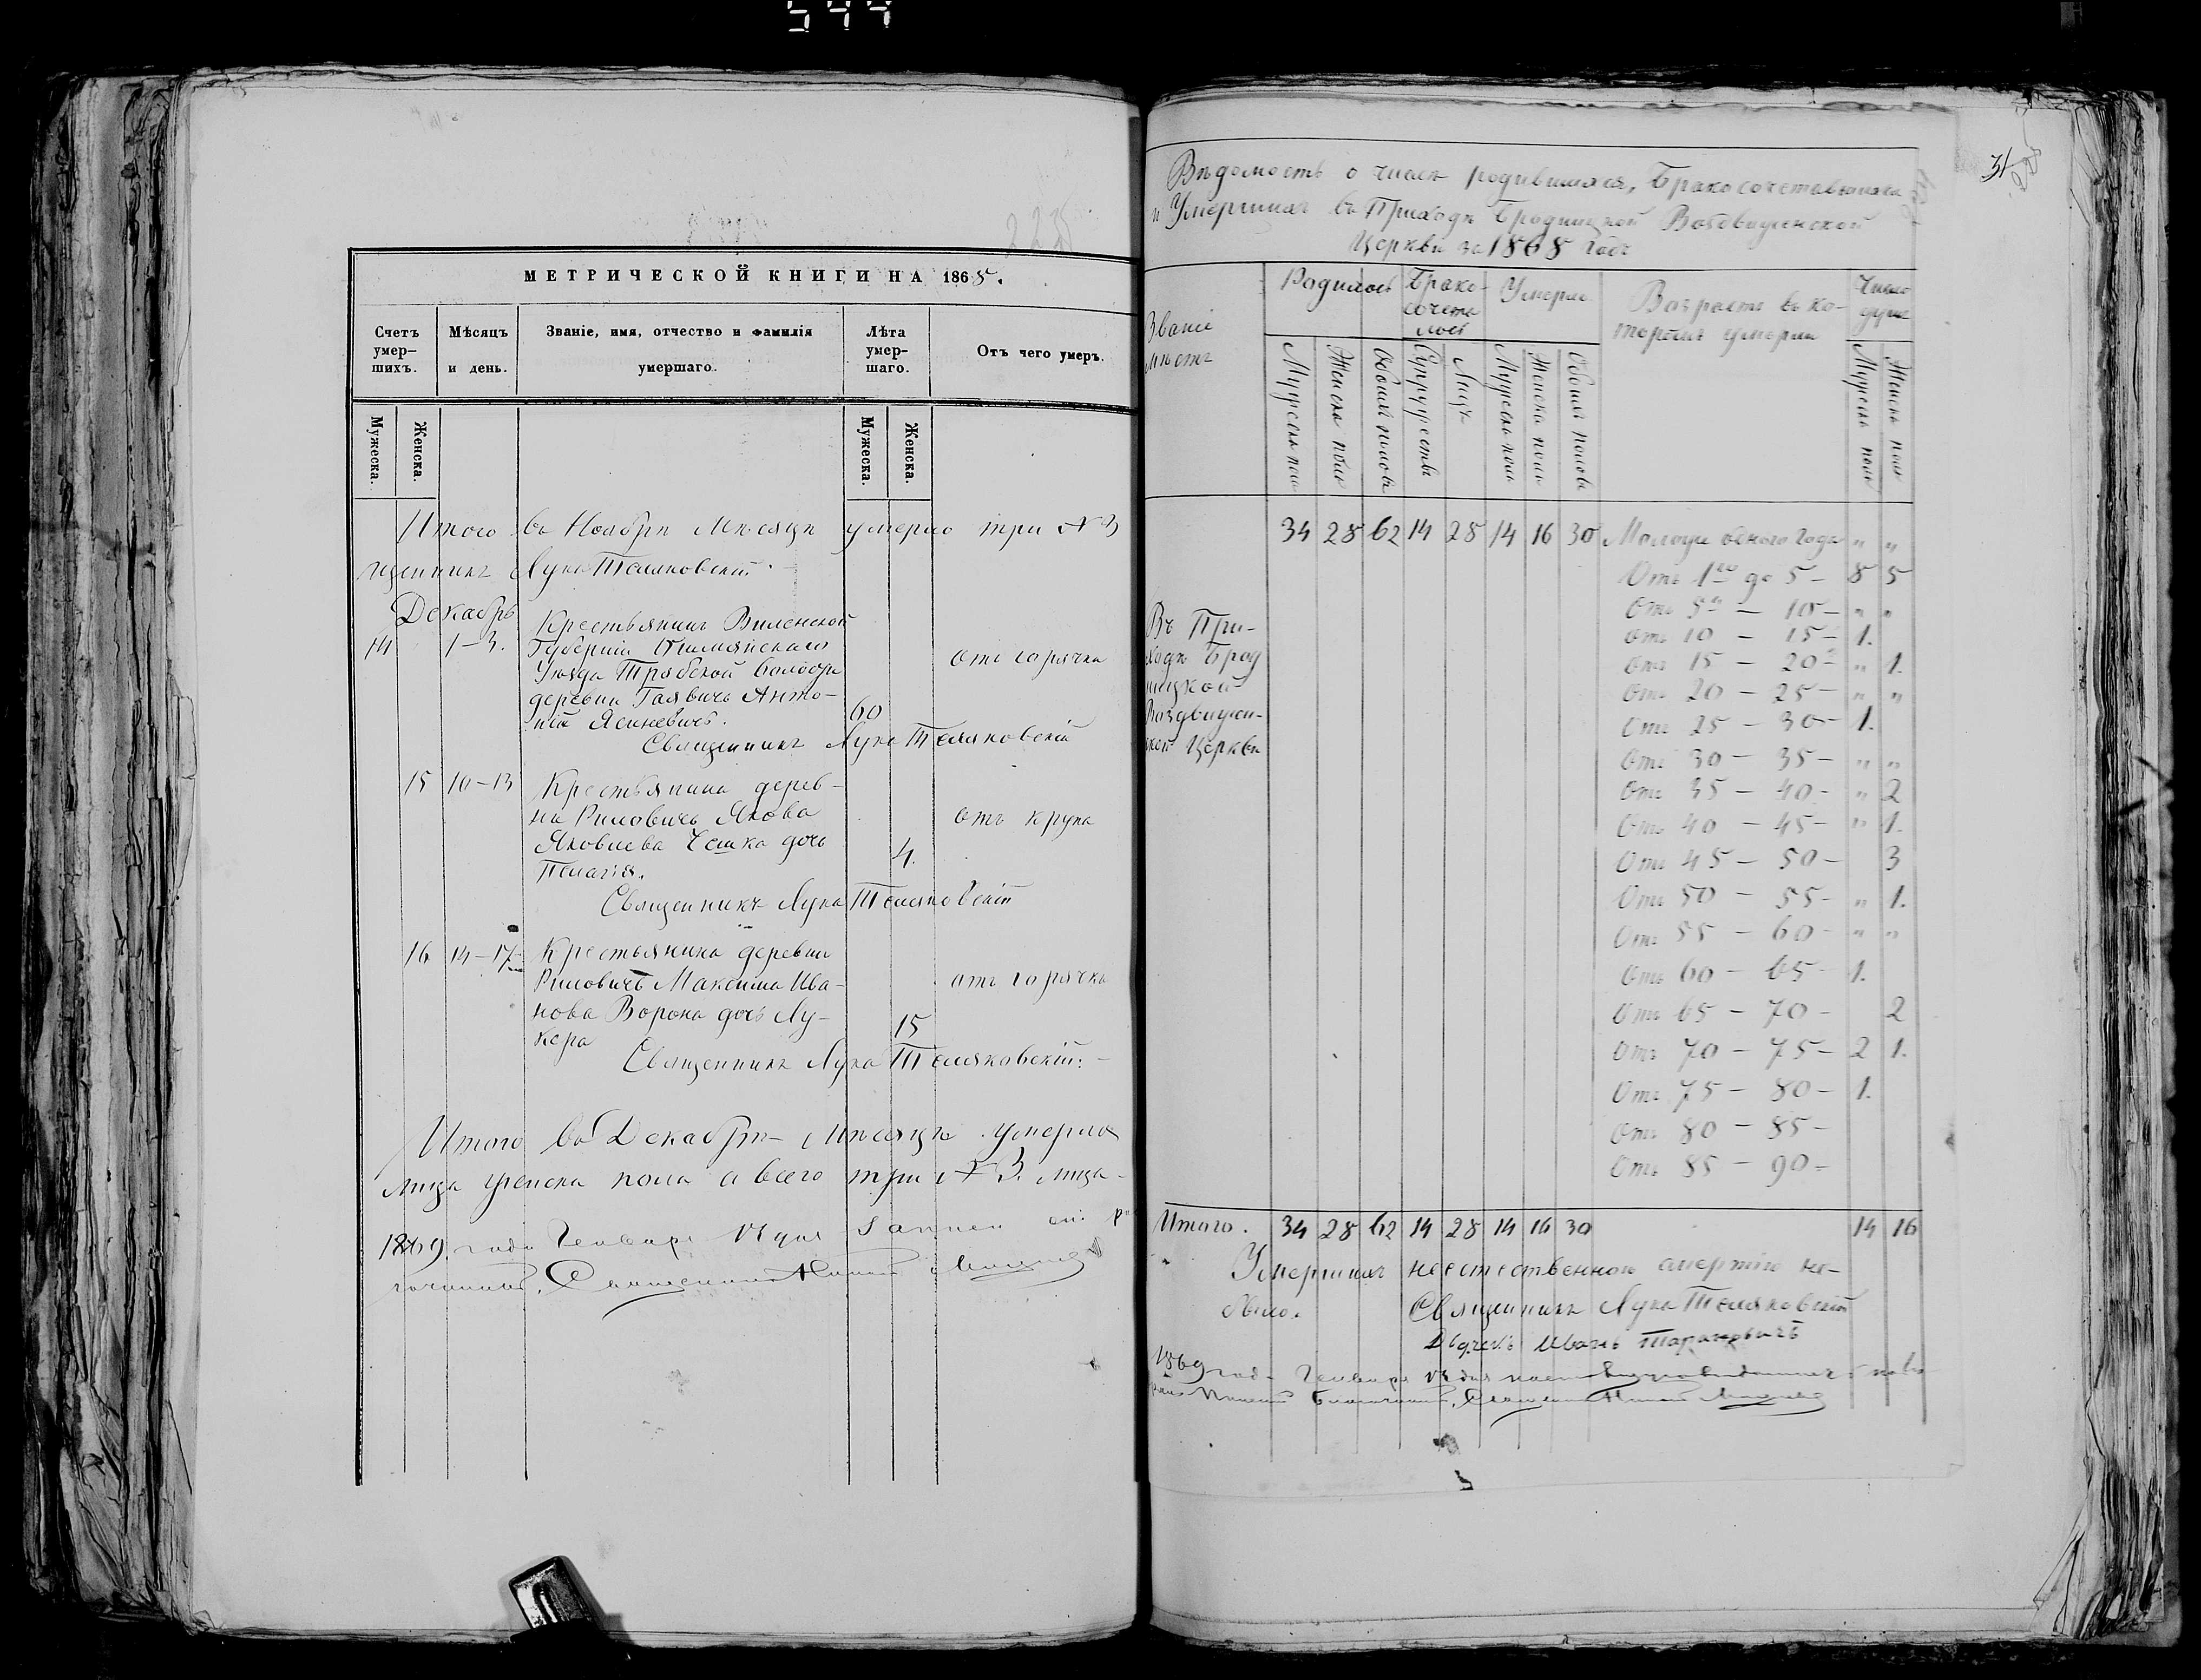 544
МЕТРИЧЕСКОЙ КНИГИ НА 1868.
Счетъ умер-шихъ.
Мѣсяцъ и день.
Званіе, имя, отчество и фамилія умершаго.
Лѣта умер-шаго.
Отъ чего умеръ.
Мужеска. Женска. Мужеска. Женска.
Итого въ Ноябрѣ Мѣсяцѣ умерло три №3
щенникъ Лука Теляковскій
Декабрь
14 1-3. Крестьянинъ Виленской
Губерніи Ошмянскаго
Уѣзда Трабской волости
отъ горячки
деревни Гаявичъ Анто-
ній Ясинкевичъ. 60
Священникъ Лука Теляковскій
15 10-13 Крестьянина дерев-
ни Риловичъ Якова
отъ крупа
Яковлева Чешка дочь 4.
Пелагія.
Священникъ Лука Теляковскій
16 14-17 Крестьянина деревни
Риловичъ Максима Ива-
отъ горячки
нова Ворона дочь Лу- 15
кера
Священникъ Лука Теляковскій.
Итого въ Декабрѣ Мѣсяцѣ умерло
лица женска пола а всего три №3. лица
1869 года Генваря
31
Вѣдомость о числѣ родившихся, Бракосочетавшихся
и Умершихъ въ Приходѣ Бродницкой Воздвиженской
Церкви за 1868 годъ
Званіе мѣстъ
Родилось
Брако-
сочета
лось
Умерло
Возрастъ въ ко-
торомъ умерли
Число
душъ
Мужеска пола
Женска пола
Обоихъ половъ
Супружествъ
Лицъ
Мужеска пола
Женска пола
Обоихъ половъ
Мужеска пола
Женска пола
34 28 62 14 28 14 16 30 Моложе одного года " "
Отъ 1го до 5 – 8 5
Отъ 5 – 10 – " "
Въ При-
отъ 10 – 15 – 1.
ходѣ Брод
отъ 15 – 20 – " 1.
ницкой
отъ 20 – 25 – " "
Воздвижен-
отъ 25 – 30 – 1.
ской Церкви
отъ 30 – 35 – " "
Отъ 35 – 40 – " 2
Отъ 40 – 45 – " 1.
Отъ 45 – 50 – 3
Отъ 50 – 55 – " 1.
Отъ 55 – 60 – " "
Отъ 60 – 65 – 1.
Отъ 65 – 70 – 2
Отъ 70 – 75 – 2 1.
Отъ 75 – 80 – 1.
Отъ 80 – 85 –
Отъ 85 – 90 –
Итого. 34 28 62 14 28 14 16 30 14 16
Умершихъ неестественною смертію не-
было. Священникъ Лука Теляковскій
Дьячекъ Иванъ Тарановичъ
1869 года Генваря